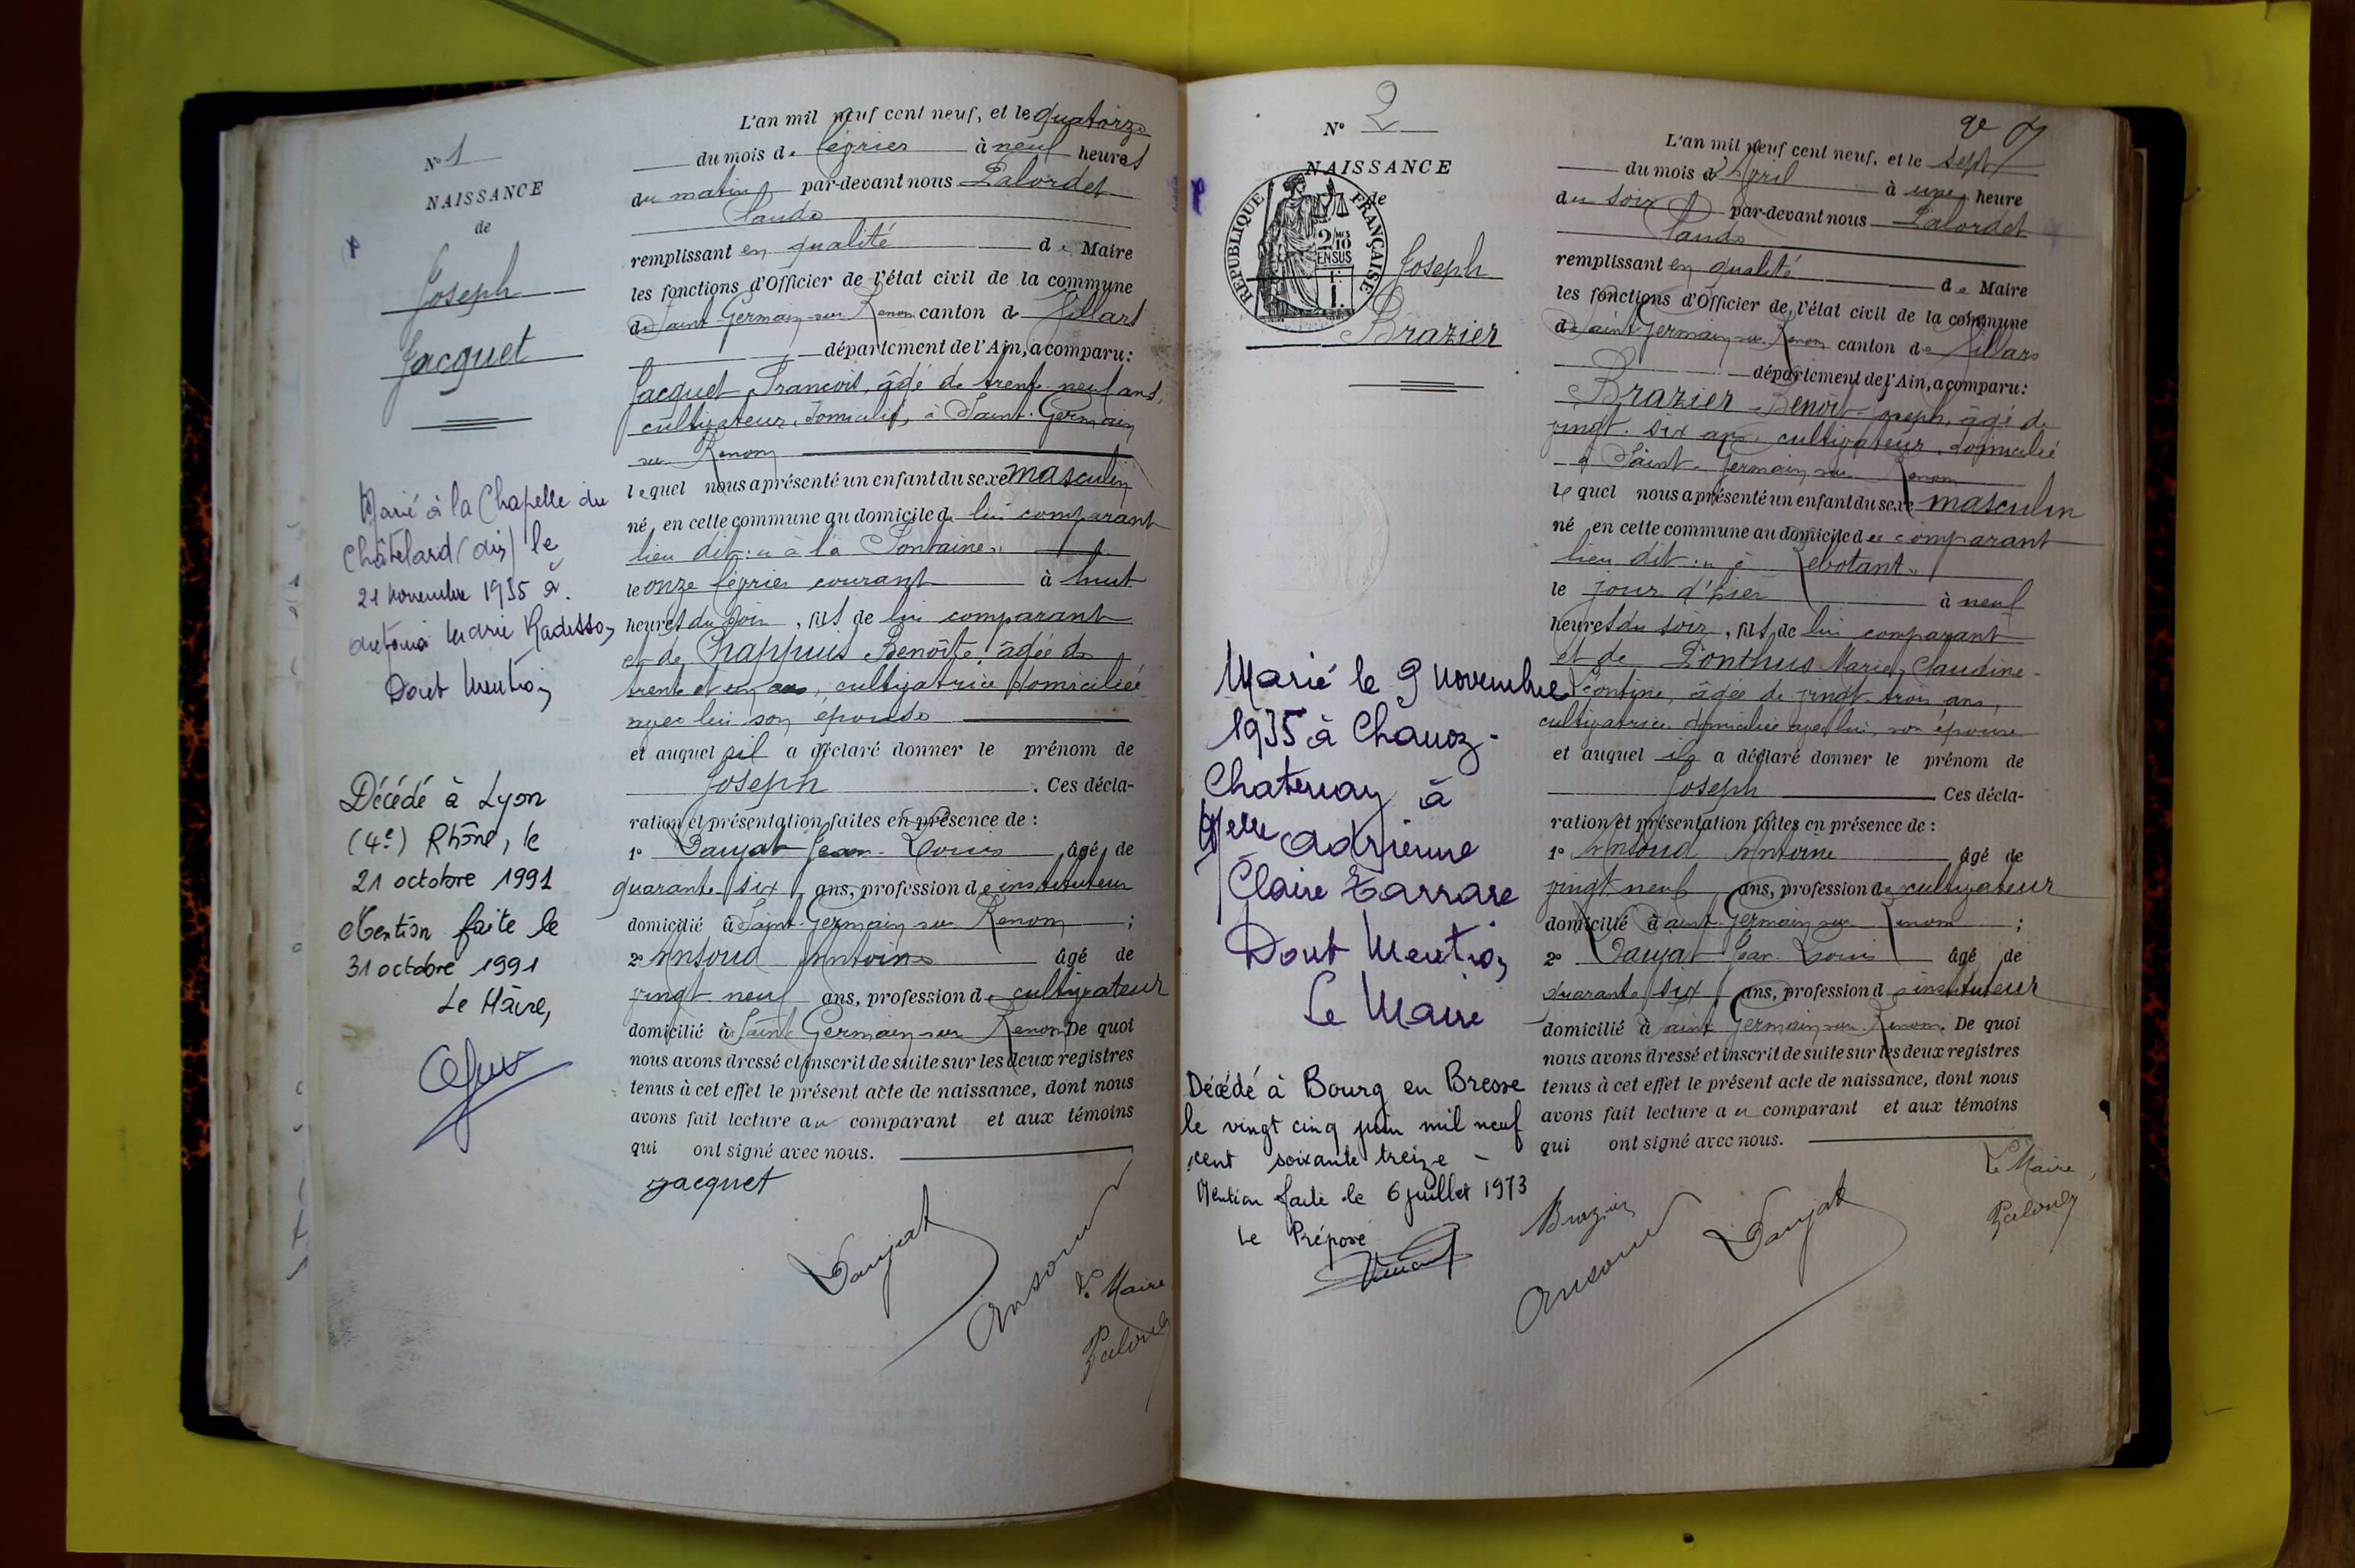 N° 1
NAISSANCE
de
Joseph
Jacquet
Marié à la Chapelle du
Châtelard (Ain) le
21 novembre 1935 à
Marie Radisson
Dont Mention
Décédé à Lyon
(4e) Rhône, le
21 octobre 1991
Mention faite le
31 octobre 1991
Le Maire,
L'an mil neuf cent neuf, et le quatorze
du mois de février à neuf heures
du matin par-devant nous Palordet
Claude
remplissant en qualité de Maire
les fonctions d'Officier de l'état civil de la commune
de Saint-Germain-sur Renom canton de Villars
département de l'Ain, a comparu:
Jacquet François, âgé de trente-neuf ans,
cultivateur, domicilié, à Saint-Germain
sur Renom
lequel nous a présenté un enfant du sexe masculin
né, en cette commune au domicile de lui comparant
lieu dit: "à la Fontaine"
le onze février courant à huit
heures du soir, fils de lui comparant
et de Chappuis Benoîte, âgée de
trente et un ans, cultivatrice domiciliée
avec lui son épouse
et auquel il a déclaré donner le prénom de
Joseph. Ces décla-
ration et présentation faites en présence de :
1° Daujat Jean-Louis âgé de
quarante six ans, profession de instituteur
domicilié à Saint-Germain sur Renom ;
2° Ansoud Antoine âgé de
vingt neuf ans, profession de cultivateur
domicilié à Saint Germain-sur Renom De quoi
nous avons dressé et inscrit de suite sur les deux registres
tenus à cet effet le présent acte de naissance, dont nous
avons fait lecture au comparant et aux témoins
qui ont signé avec nous.
Jacquet
Daujat
Ansoud
Le Maire
Palordet
N° 2
NAISSANCE
de
RÉPUBLIQUE FRANÇAISE
2/10
EN SUS
Joseph
Brazier
Marié le 9 novembre
1935 à Chanoz-
Chatenay à
Melle Adrienne
Claire
Dont Mention
Le Maire
Décédé à Bourg en Bresse
le vingt cinq juin mil neuf
cent soixante treize -
Mention faite le 6 juillet 1973
Le Préposé
L'an mil neuf cent neuf, et le sept
du mois d'Avril à une heure
du soir par-devant nous Palordet
Claude
remplissant en qualité de Maire
les fonctions d'Officier de l'état civil de la commune
de Saint Germain-sur-Renom canton de Villars
département de l'Ain, a comparu:
Brazier Benoît-Joseph, âgé de
vingt-six ans, cultivateur, domicilié
à Saint-Germain sur Renom
lequel nous a présenté un enfant du sexe masculin
né en cette commune au domicile du comparant
lieu dit: "à Rebotant"
le jour d'hier à neuf
heures du soir, fils de lui comparant
et de Ponthus Marie, Claudine-
Léontine, âgée de vingt-trois ans,
cultivatrice, domiciliée avec lui, son épouse
et auquel il a déclaré donner le prénom de
Joseph Ces décla-
ration et présentation faites en présence de :
1° Ansoud Antoine âgé de
vingt neuf ans, profession de cultivateur
domicilié à Saint-Germain sur Renom ;
2° Daujat Jean-Louis âgé de
quarante six ans, profession d'instituteur
domicilié à Saint Germain-sur-Renom. De quoi
nous avons dressé et inscrit de suite sur les deux registres
tenus à cet effet le présent acte de naissance, dont nous
avons fait lecture au comparant et aux témoins
qui ont signé avec nous.
Brazier
Ansoud
Daujat
Le Maire,
Palordet